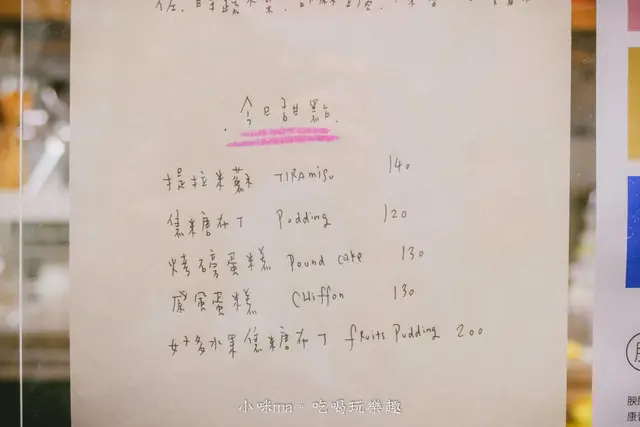 今日甜點
提拉米蘇 TIRAMiSU 140
焦糖布丁 Pudding 120
烤磅蛋糕 Pound cake 130
戚風蛋糕 CHiffon 130
好多水果焦糖布丁 fRuits Pudding 200
小咪ma。吃喝玩樂趣